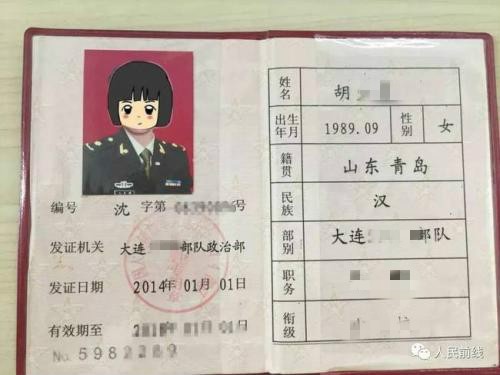 编号 沈 字第 号
发证机关 大连 部队政治部
发证日期 2014年01月01日
有效期至 01日
No. 5982
姓名 胡
出生年月 1989.09 性别 女
籍贯 山东青岛
民族 汉
部别 大连 部队
职务
衔级
人民前线